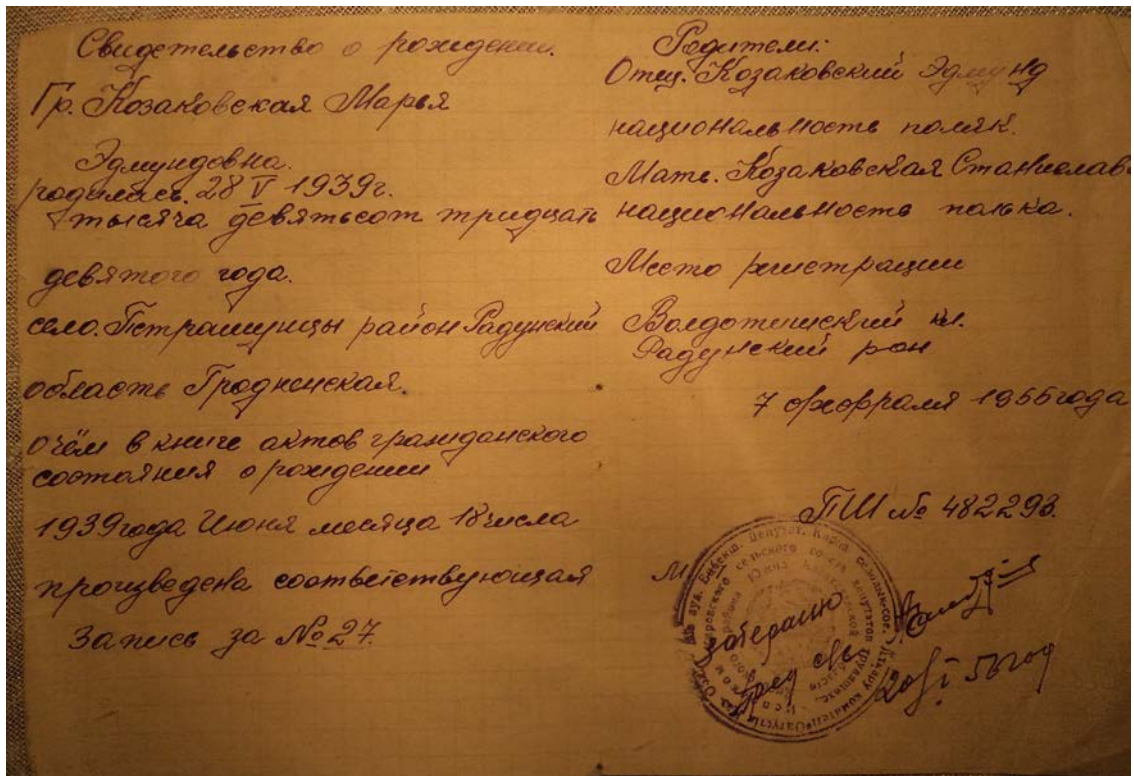 Свидетельство о рождении.
Гр. Козаковская Марья
Эдмундовна.
родилась. 28 V 1939г.
тысяча девятьсот тридцать
девятого года.
село. Петрашунцы район Радунский
область Гродненская.
о чём в книге актов гражданского
состояния о рождении
1939 года Июня месяца 18 числа
произведена соответствующая
запись за № 27.
Родители:
Отец. Козаковский Эдмунд
национальность поляк.
Мать. Козаковская Станислава
национальность полька.
Место регистрации
Радунский рон
7 февраля 1955 года
ПШ № 482293.
М
20/I 56 год